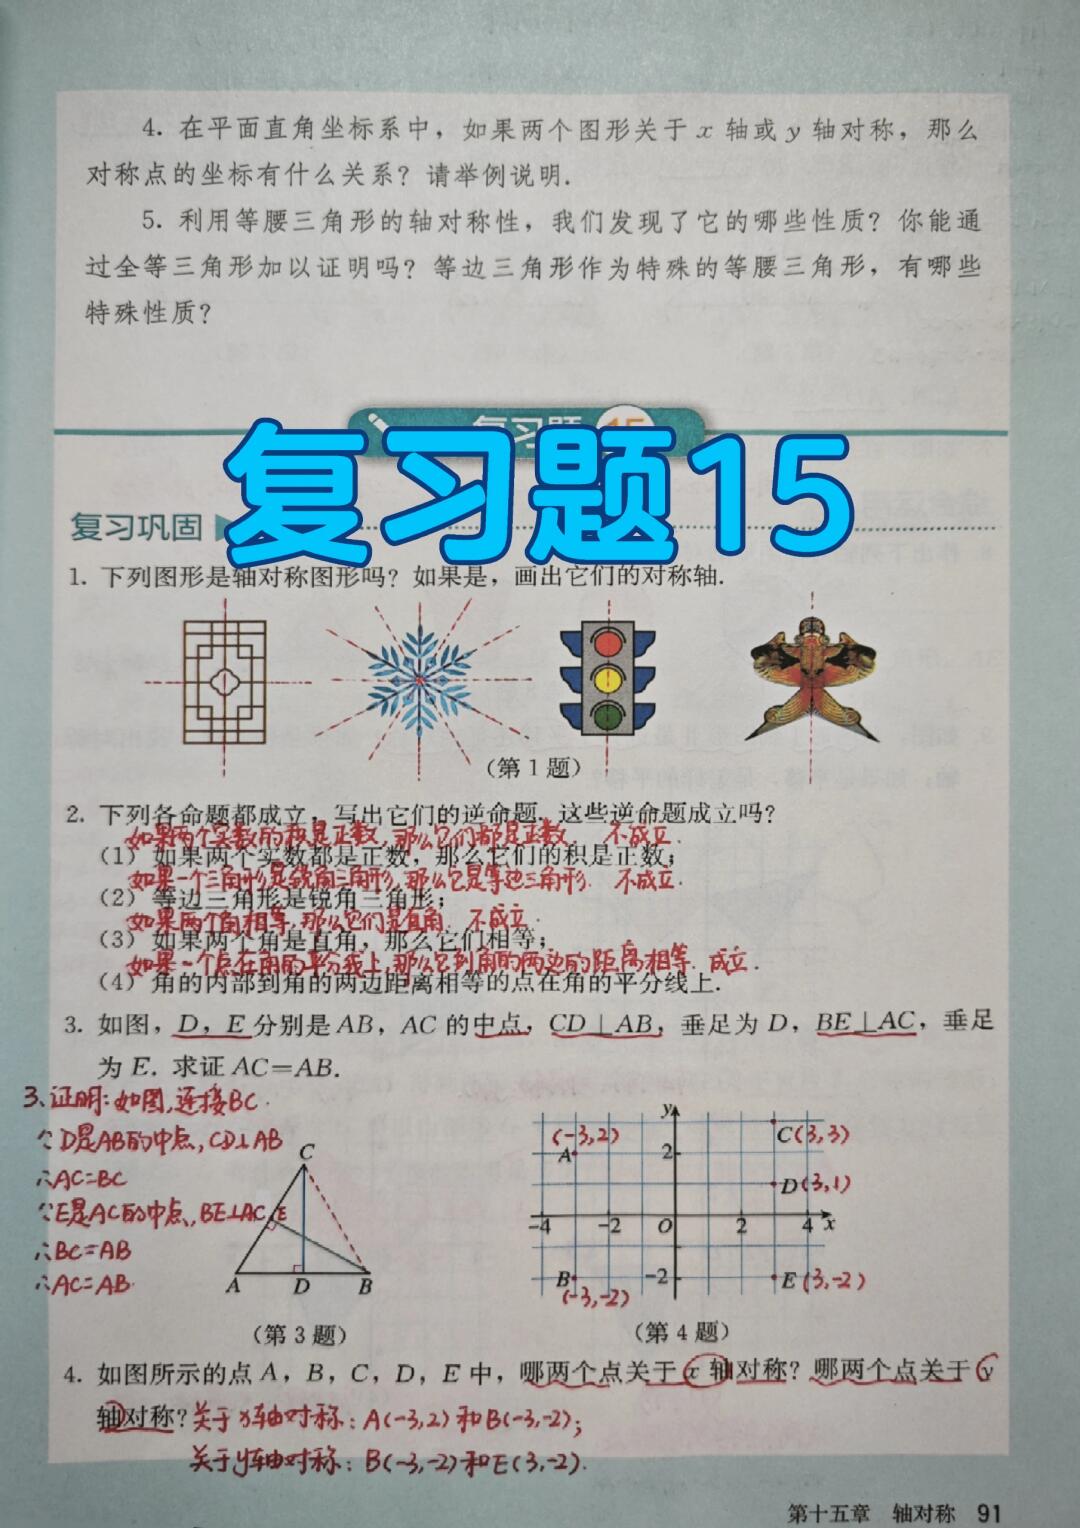 4. 在平面直角坐标系中，如果两个图形关于 x 轴或 y 轴对称，那么
对称点的坐标有什么关系？请举例说明.
5. 利用等腰三角形的轴对称性，我们发现了它的哪些性质？你能通
过全等三角形加以证明吗？等边三角形作为特殊的等腰三角形，有哪些
特殊性质？
复习题 15
复习题15
复习巩固
1. 下列图形是轴对称图形吗？如果是，画出它们的对称轴.
（第 1 题）
2. 下列各命题都成立，写出它们的逆命题. 这些逆命题成立吗？
如果两个实数的积是正数，那么它们都是正数. 不成立.
（1）如果两个实数都是正数，那么它们的积是正数；
如果一个三角形是锐角三角形，那么它是等边三角形. 不成立.
（2）等边三角形是锐角三角形；
如果两个角相等，那么它们是直角. 不成立.
（3）如果两个角是直角，那么它们相等；
如果一个点在角的平分线上，那么它到角的两边的距离相等. 成立.
（4）角的内部到角的两边距离相等的点在角的平分线上.
3. 如图，D，E 分别是 AB，AC 的中点，CD⊥AB，垂足为 D，BE⊥AC，垂足
为 E. 求证 AC=AB.
3、证明：如图，连接BC.
∵D是AB的中点，CD⊥AB
∴AC=BC
∵E是AC的中点，BE⊥AC
∴BC=AB
∴AC=AB.
C
E
A D B
（第 3 题）
y
(-3,2)
A
2
C(3,3)
D(3,1)
-4 -2 O 2 4 x
B
-2
E(3,-2)
(-3,-2)
（第 4 题）
4. 如图所示的点 A，B，C，D，E 中，哪两个点关于 x 轴对称？哪两个点关于 y
轴对称？关于x轴对称：A(-3,2)和B(-3,-2)；
关于y轴对称：B(-3,-2)和E(3,-2).
第十五章 轴对称 91